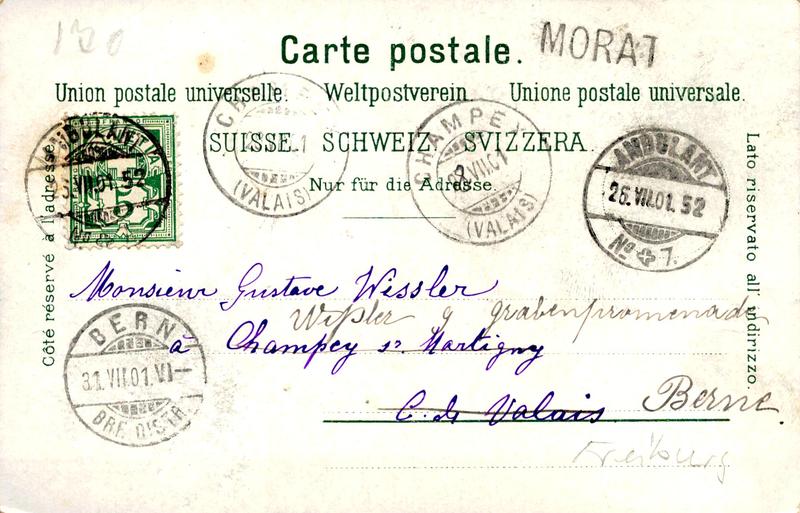 130
Carte postale.
MORAT
Union postale universelle. Weltpostverein. Unione postale universale.
SUISSE. SCHWEIZ. SVIZZERA.
Nur für die Adresse.
Côté réservé à l'adresse.
Lato riservato all' indirizzo.
AMBULANT
VII.01. 52
(VALAIS)
CHAMPEX
VII.01
(VALAIS)
AMBULANT
26.VII.01. 52
No 7.
Monsieur Gustave Wissler
Wissler 9 Grabenpromenade
à Champey sr. Martigny
C. de Valais. Berne.
Freiburg
BERN
31.VII.01. VI
BRF. DISTR.